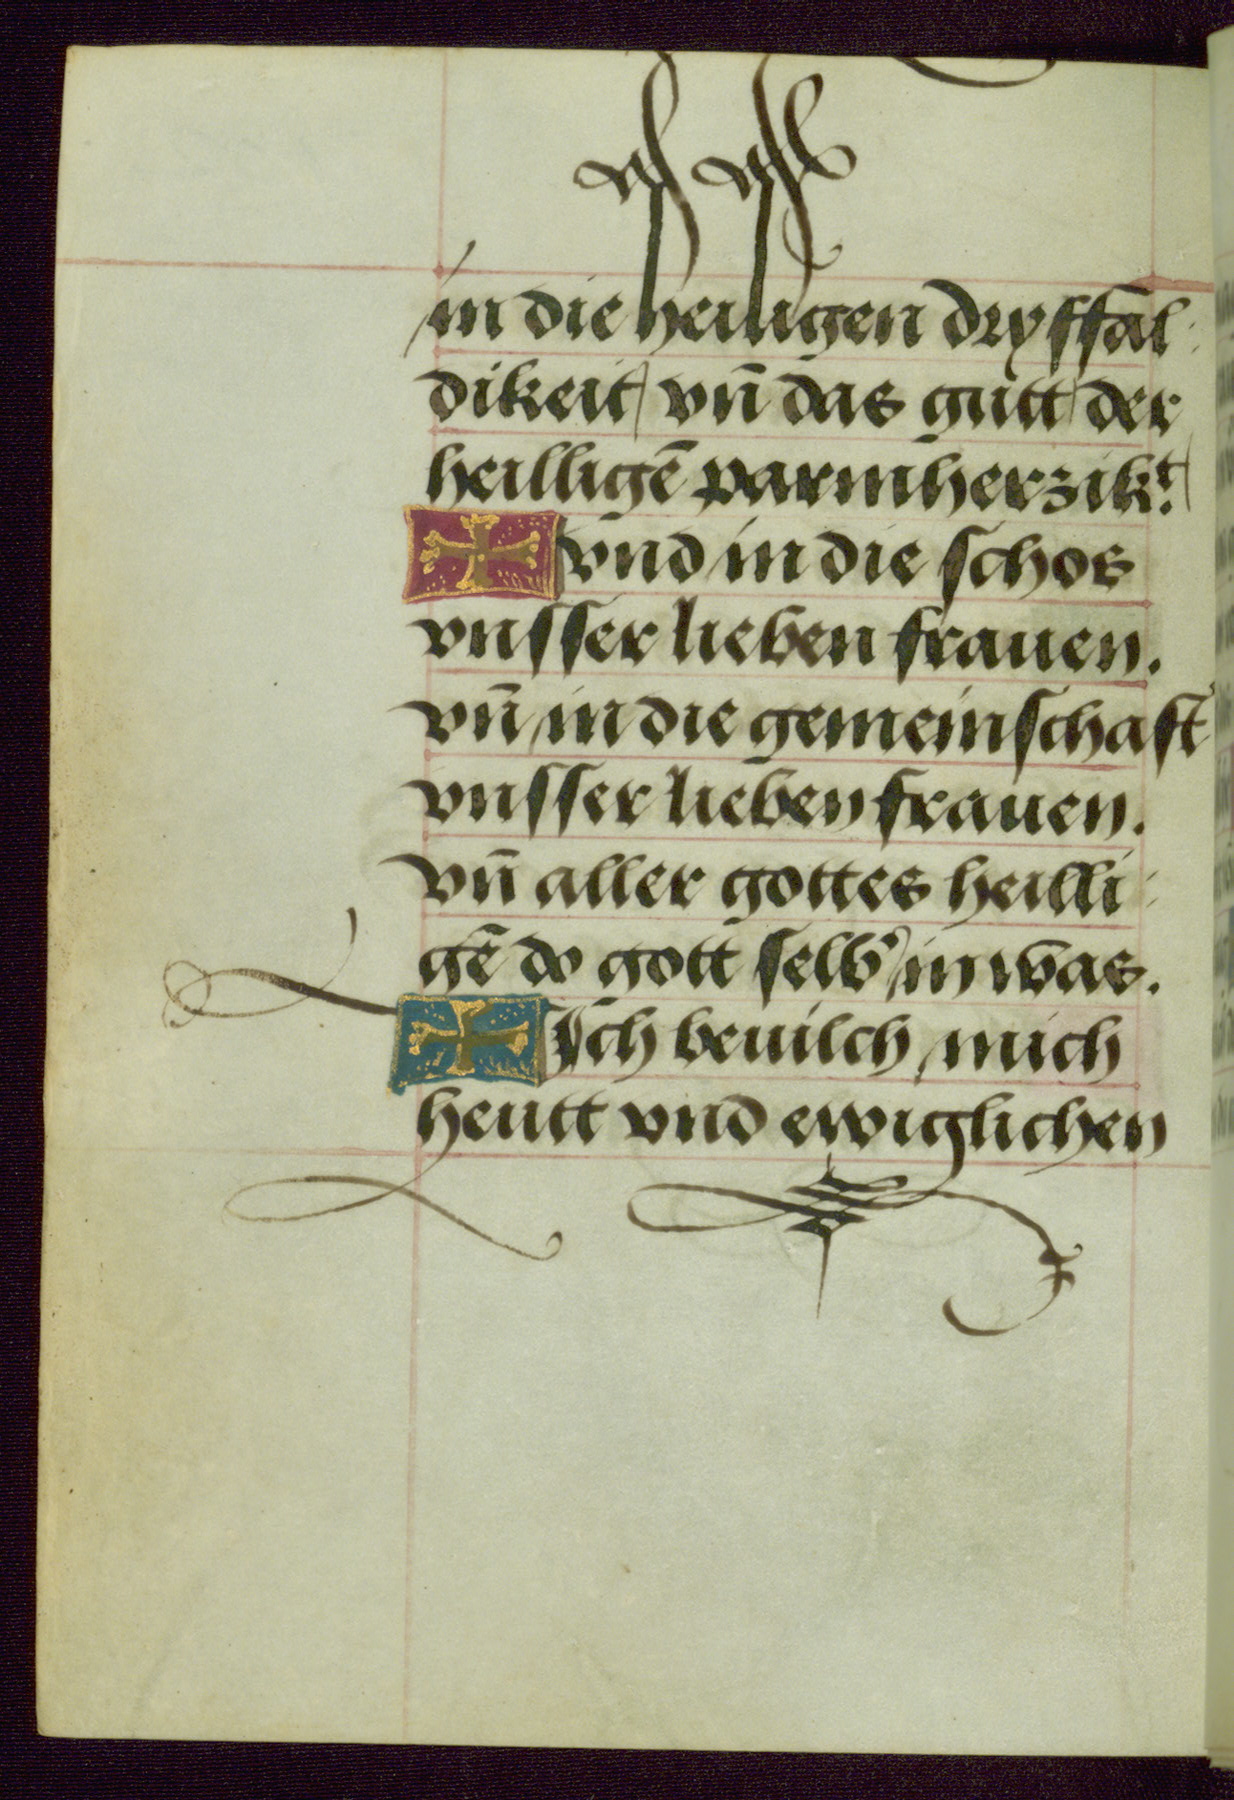 in die heiligen dryffal:
dikeit/ vñ das gutt/ der
heilligē parmherzikt:/
✠ vnd in die schos
vnsser lieben frauen.
vñ in die gemeinschaft
vnsser lieben frauen.
vñ aller gottes heilli:
gē do gott selb' in was.
✠ Ich beuilch mich
heutt vnd ewiglichen